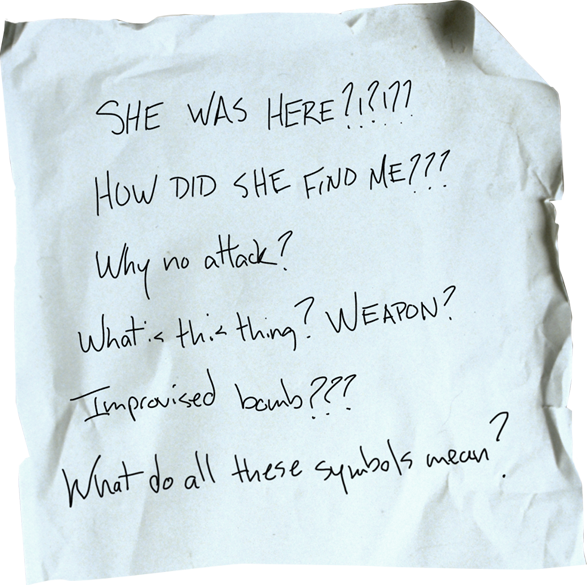 SHE WAS HERE?!?!??
HOW DID SHE FIND ME???
Why no attack?
What is this thing? WEAPON?
Improvised bomb???
What do all these symbols mean?